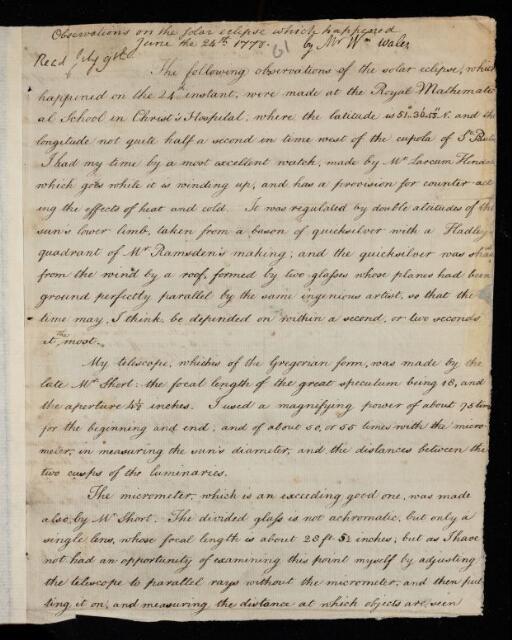 Observations on the solar eclipse which happened
June the 24th 1778. by Mr Wm Wales
61
Read July 9th
The following observations of the solar eclipse, which
happened on the 24th instant, were made at the Royal Mathematic
al School in Christ's Hospital; where the latitude is 51. 30. 55 N. and the
longitude not quite half a second in time west of the cupola of St Pauls
I had my time by a most excellent watch, made by Mr Larcum Kendal
which goes while it is winding up, and has a provision for counter-act
ing the effects of heat and cold. It was regulated by double altitudes of the
sun's lower limb, taken from a bason of quicksilver with a Hadley's
quadrant of Mr Ramsden's making; and the quicksilver was
from the wind by a roof, formed by two glasses whose planes had been
ground perfectly parallel by the same ingenious artist, so that the
time may, I think, be depended on within a second, or two seconds
at the most.
My telescope, which is of the Gregorian form, was made by the
late Mr Short: the focal length of the great speculum being 18, and
the aperture 4½ inches. I used a magnifying power of about 75 times
for the beginning and end; and of about 50, or 55 times with the micro-
meter, in measuring the sun's diameter, and the distances between the
two cusps of the luminaries.
The micrometer, which is an exceeding good one, was made
also, by Mr Short. The divided glass is not achromatic, but only a
single lens, whose focal length is about 28 ft 5½ inches; but as I have
not had an opportunity of examining this point myself by adjusting
the telescope to parallel rays without the micrometer, and then put
ting it on, and measuring the distance at which objects are seen